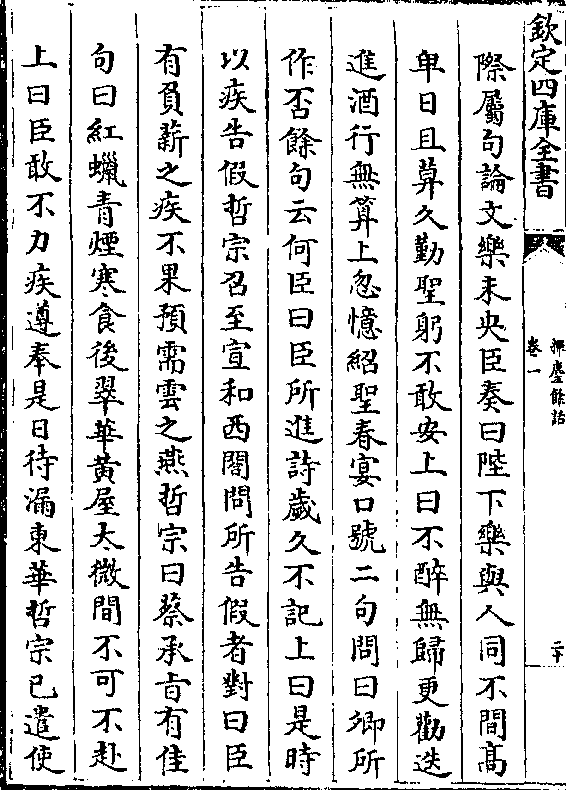 欽定四庫全書
揮麈餘話
卷一
二十
際屬句論文樂未央臣奏曰陛下樂與人同不間髙
卑日且莫久勤聖躬不敢安上曰不醉無歸更勸迭
進酒行無算上忽憶紹聖春宴口號二句問曰卿所
作否餘句云何臣曰臣所進詩歲久不記上曰是時
以疾告假哲宗召至宣和西閣問所告假者對曰臣
有負薪之疾不果預需雲之燕哲宗曰蔡承㫖有佳
句曰紅蠟青煙寒食後翠華黃屋太微間不可不赴
上曰臣敢不力疾遵奉是日待漏東華哲宗已遣使